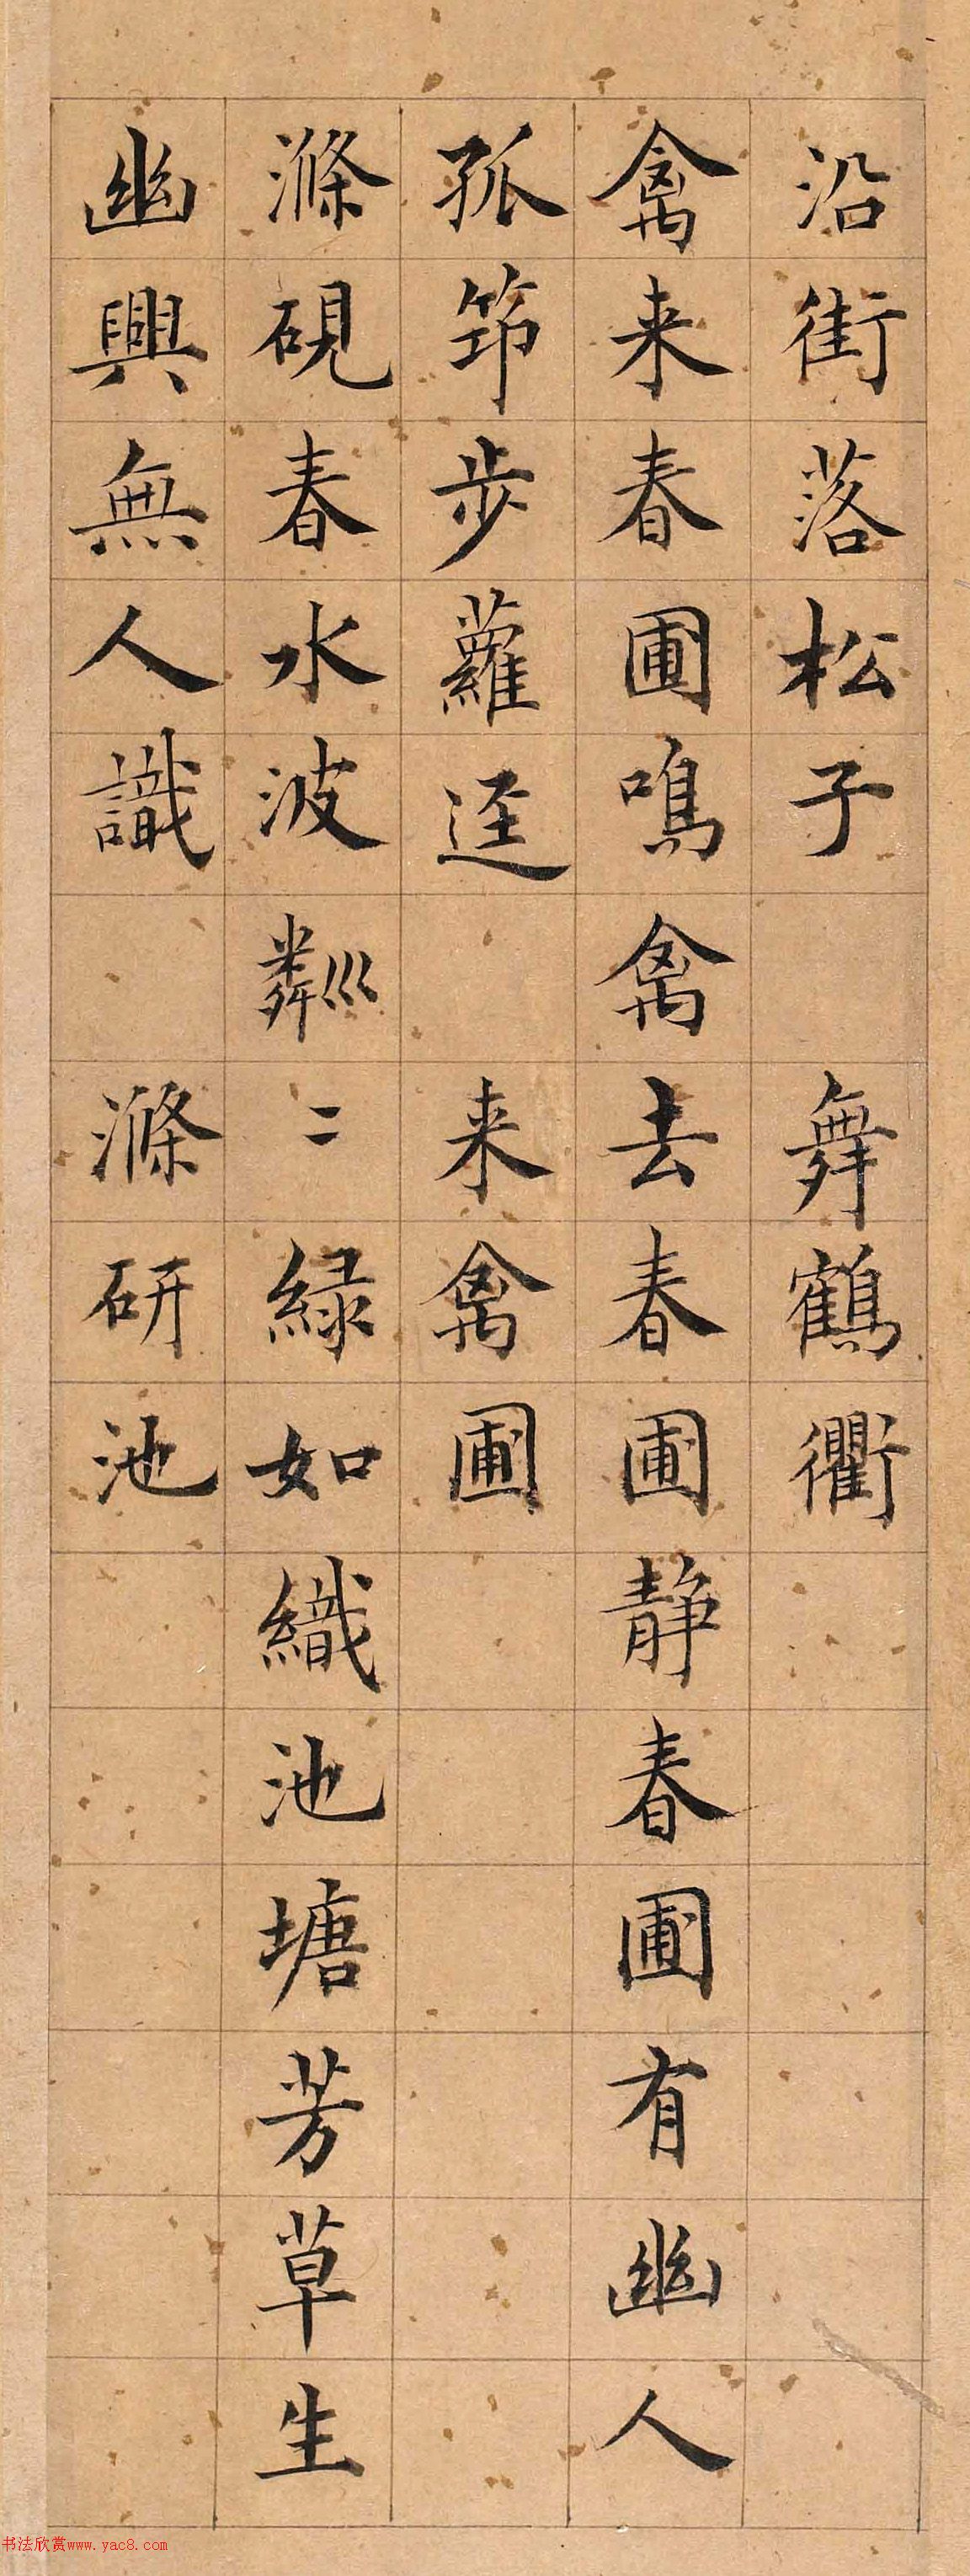 沿街落松子 舞鶴衢
禽来春圃鳴禽去春圃静春圃有幽人
孤筇步蘿逕 来禽圃
滌硯春水波粼〻綠如織池塘芳草生
幽興無人識 滌研池
书法欣赏www.yac8.com